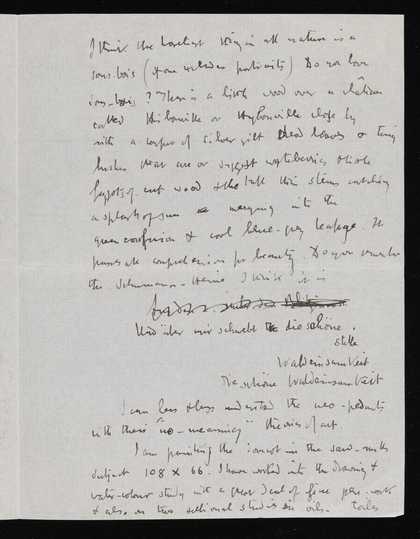 I think the loveliest thing in all nature is a
sous-bois (              ) Do you love
sous-bois? There is a little wood over a château
called Hibouville or Hybouville close by
with a carpet of silver gilt dead leaves & tiny
bushes that are or suggest wortleberries &
faggots of cut wood & the tall thin stems catching
a splash of sun merging into the
green confusion & cool blue-grey leafage. It
passes all comprehension for beauty. Do you remember
the Schumann-Heine I think it is
Und über mir schwebt die schöne.
stille
Waldeinsamkeit
Die schöne Waldeinsamkeit
I can less & less understand the neo-pedants
with there "no-meaning" theories of art
I am painting the             in the saw-mills
subject 108 x 66. I have worked into the drawing &
water-colour study with a great deal of fine pen-work
& also on two sectional studies in oils.